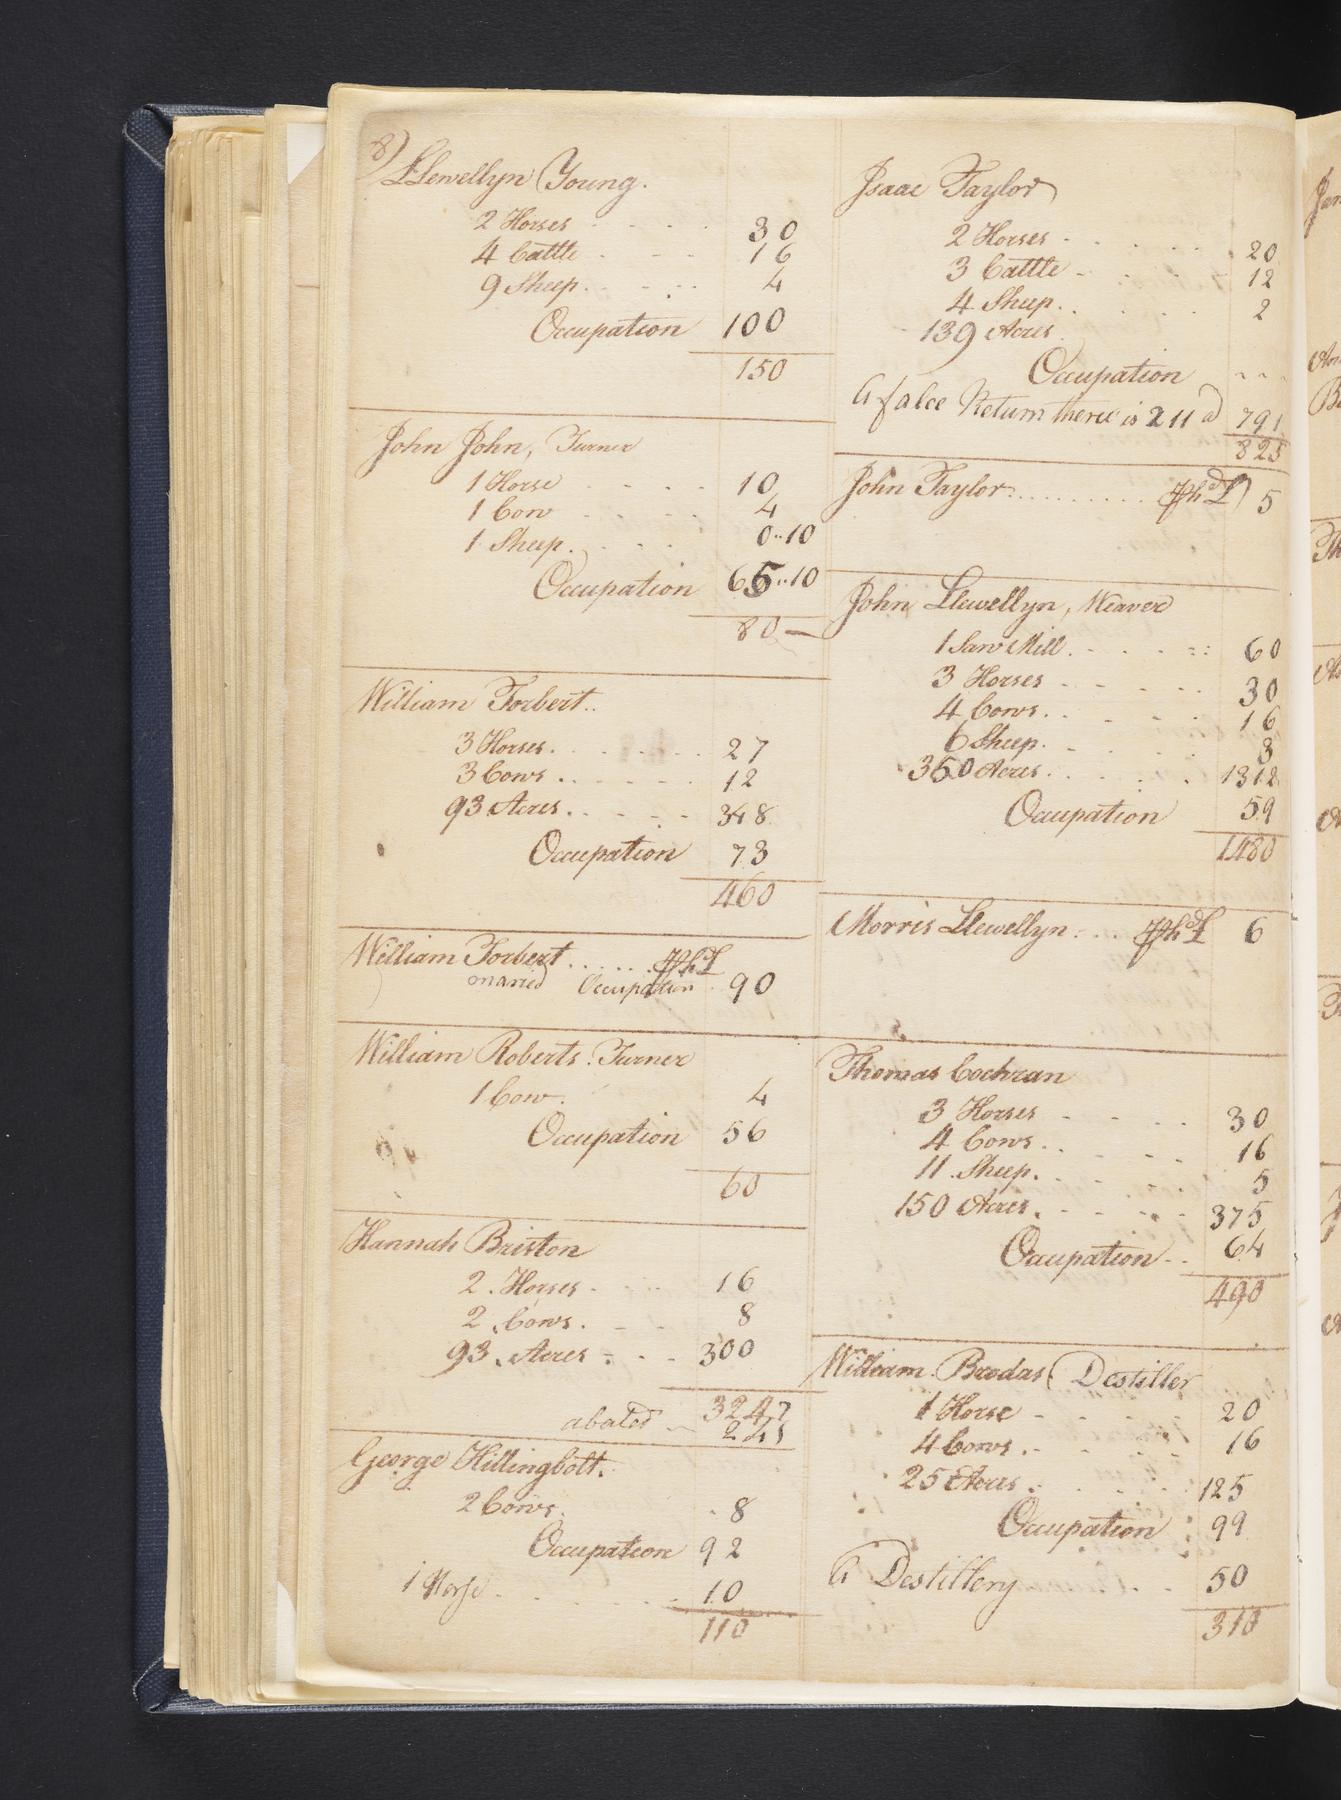 8)
Llewellyn Young.
2 Horses 30
4 Cattle 16
9 Sheep 4
Occupation 100
150
John John, Turner
1 Horse 10
1 Cow 4
1 Sheep 0..10
Occupation 65..10
80 —
William Torbert
3 Horses 27
3 Cows 12
93 Acres 348
Occupation 73
460
William Torbert
married Occupation 90
William Roberts. Turner
1 Cow 4
Occupation 56
60
Hannah Briston
2 Horses 16
2 Cows 8
93 Acres 300
abated
George Hillingbott.
2 Cows 8
Occupation 92
1 Horse 10
110
Isaac Taylor
2 Horses 20
3 Cattle 12
4 Sheep 2
139 Acres
Occupation
A falce Return there is 211 a 791
825
John Taylor 5
John Llewellyn, Weaver
1 Saw Mill 60
3 Horses 30
4 Cows 16
6 Sheep 3
350 Acres 1312
Occupation 59
1480
Morris Llewellyn 6
Thomas Cochran
3 Horses 30
4 Cows 16
11 Sheep 5
150 Acres 375
Occupation 64
490
William Brodas (Destiller
1 Horse 20
4 Cows 16
25 Acres 125
Occupation 99
A Destillery 50
310